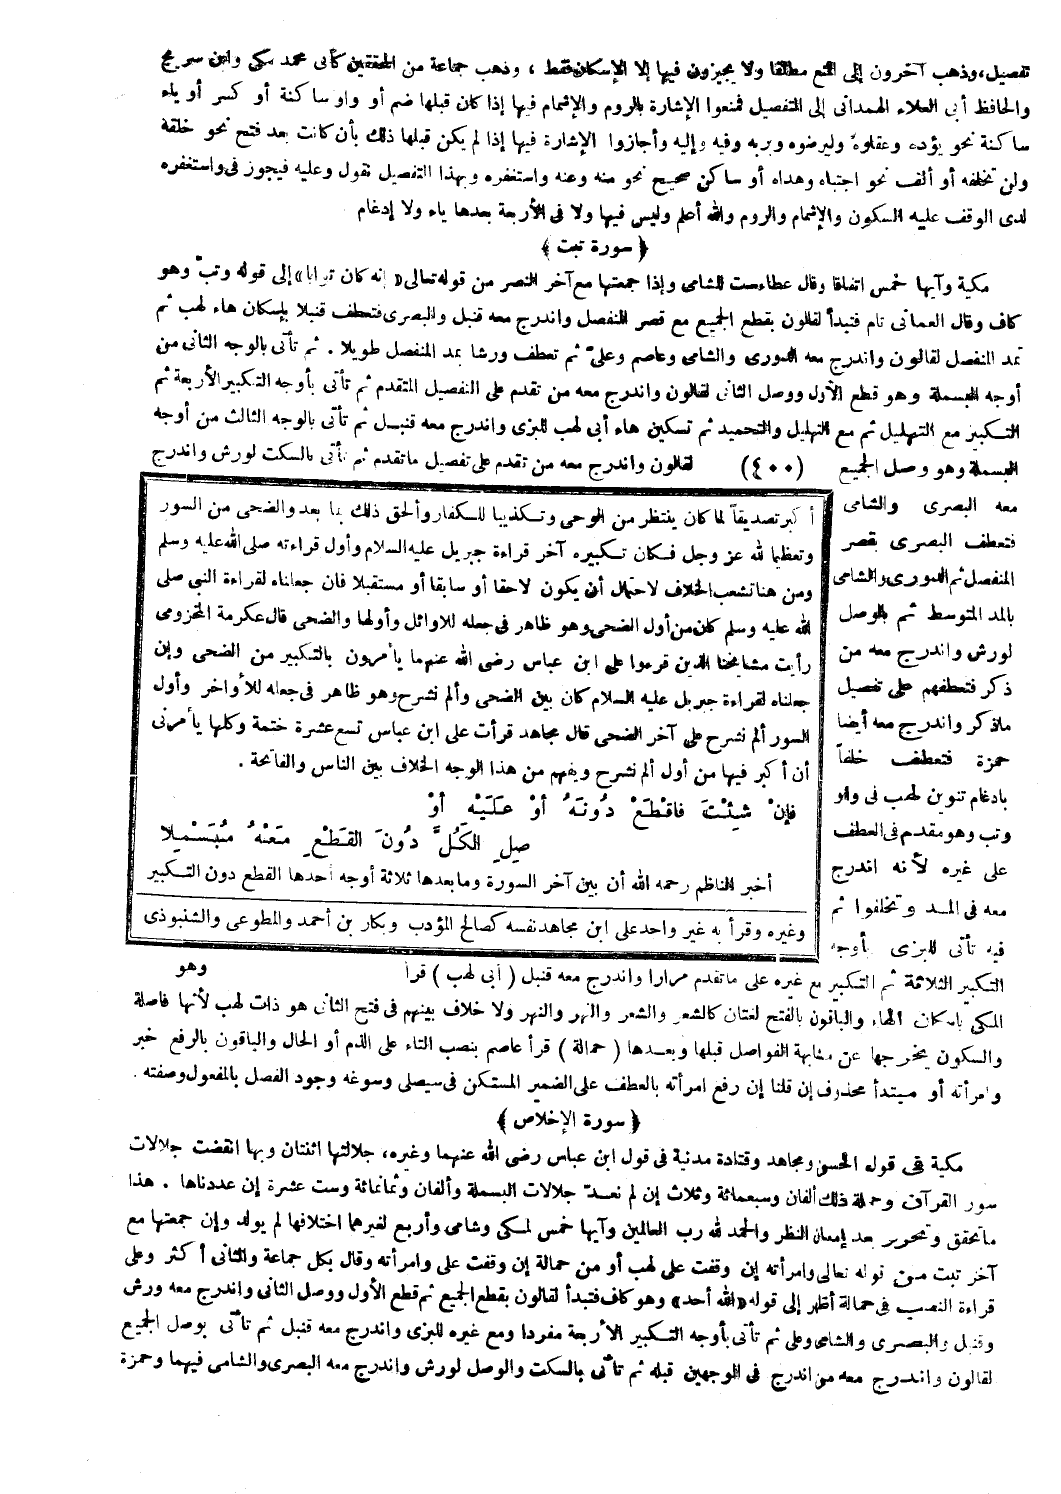 تفصيل، وذهب آخرون إلى المنع مطلقا ولا يجيزون فيها إلا الإسكان فقط ، وذهب جماعة من المحققين كأبى محمد مكى وابن سريج
والحافظ أبى العلاء الهمدانى إلى التفصيل فمنعوا الإشارة بالروم والإشمام فيها إذا كان قبلها ضم أو واو ساكنة أو كسر أو ياء
ساكنة نحو يؤده وعقلوه وليرضوه وربه وفيه وإليه وأجازوا الإشارة فيها إذا لم يكن قبلها ذلك بأن كانت بعد فتح نحو خلقة
ولن تخلفه أو ألف نحو اجتباه وهداه أو ساكن صحيح نحو منه وعنه واستغفره وبهذا التفصيل نقول وعليه فيجوز فى واستغفره
لدى الوقف عليه السكون والإشمام والروم والله أعلم وليس فيها ولا فى الأربعة بعدها ياء ولا إدغام
﴿ سورة تبت ﴾
مكية وآيها خمس اتفاقا وقال عطاء ست للشامى وإذا جمعتها مع آخر النصر من قوله تعالى «إنه كان توابا» إلى قوله وتبّ وهو
كاف وقال العمانى تام فتبدأ لقالون بقطع الجميع مع قصر المنفصل واندرج معه قنبل والبصرى فتعطف قنبلا بإسكان هاء لهب ثم
تمد المنفصل لقالون واندرج معه الدورى والشامى وعاصم وعلىّ ثم تعطف ورشا بمد المنفصل طويلا . ثم تأتى بالوجه الثانى من
أوجه البسملة وهو قطع الأول ووصل الثانى لقالون واندرج معه من تقدم على التفصيل المتقدم ثم تأتى بأوجه التكبير الأربعة ثم
التكبير مع التهليل ثم مع التهليل والتحميد ثم تسكين هاء أبى لهب للبزى واندرج معه قنبل ثم تأتى بالوجه الثالث من أوجه
البسملة وهو وصل الجميع (٤٠٠) لقالون واندرج معه من تقدم على تفصيل ما تقدم ثم تأتى بالسكت لورش واندرج
معه البصرى والشامى
فتعطف البصرى بقصر
المنفصل ثم الدورى والشامى
بالمد المتوسط ثم بالوصل
لورش واندرج معه من
ذكر فتعطفهم على تفصيل
ماذكر واندرج معه أيضا
حمزة فتعطف خلفاً
بادغام تنوين لهب فى واو
وتب وهو مقدم فى العطف
على غيره لأنه اندرج
معه فى المد وتخلفوا ثم
فيه تأتى للبزى بأوجه
أكبر تصديقاً لما كان ينتظر من الوحى وتكذيبا للكفار وألحق ذلك بما بعد والضحى من السور
وتعظيما لله عز وجل فكان تكبيره آخر قراءة جبريل عليه السلام وأول قراءته صلى الله عليه وسلم
ومن هنا تشعب الخلاف لاحتمال أن يكون لاحقا أو سابقا أو مستقبلا فان جعلناه لقراءة النبى صلى
الله عليه وسلم كان من أول الضحى وهو ظاهر فى جعله للاوائل وأولها والضحى قال عكرمة المخزومى
رأيت مشايخنا الذين قرءوا على ابن عباس رضى الله عنهما يأمرون بالتكبير من الضحى وإن
جعلناه لقراءة جبريل عليه السلام كان بين الضحى وألم نشرح وهو ظاهر فى جعله للأواخر وأول
السور ألم نشرح على آخر الضحى قال مجاهد قرأت على ابن عباس تسع عشرة ختمة وكلها يأمرنى
أن أكبر فيها من أول ألم نشرح ويفهم من هذا الوجه الخلاف بين الناس والفاتحة .
فإنْ شِئْتَ فاقْطَعْ دُونَهُ أوْ عَلَيْهِ أوْ
صِلِ الكُلَّ دُونَ القَطْعِ مَعْهُ مُبَسْمِلا
أخبر الناظم رحمه الله أن بين آخر السورة وما بعدها ثلاثة أوجه أحدها القطع دون التكبير
وغيره وقرأ به غير واحد على ابن مجاهد نفسه كصالح المؤدب وبكار بن أحمد والمطوعى والشنبوذى
التكبير الثلاثة ثم التكبير مع غيره على ما تقدم مرارا واندرج معه قنبل ( أبى لهب ) قرأ وهو
المكى باسكان الهاء والباقون بالفتح لغتان كالشعر والشعر والنهر والنهر ولا خلاف بينهم فى فتح الثانى هو ذات لهب لأنها فاصلة
والسكون يخرجها عن مشابهة الفواصل قبلها وبعدها ( حمالة ) قرأ عاصم بنصب التاء على الذم أو الحال والباقون بالرفع خبر
وامرأته أو مبتدأ محذوف إن قلنا إن رفع امرأته بالعطف على الضمير المستكن فى سيصلى وسوغه وجود الفصل بالمفعول وصفته .
﴿ سورة الإخلاص ﴾
مكية فى قول الحسن ومجاهد وقتادة مدنية فى قول ابن عباس رضى الله عنهما وغيره، جلالتها اثنتان وبها انقضت جلالات
سور القرآن وجملة ذلك ألفان وسبعمائة وثلاث إن لم نعدّ جلالات البسملة وألفان وثمانمائة وست عشرة إن عددناها . هذا
ما تحقق وتحرير بعد إمعان النظر والحمد لله رب العالمين وآيها خمس لمكى وشامى وأربع لغيرهما اختلافها لم يولد وإن جمعتها مع
آخر تبت من قوله تعالى وامرأته إن وقفت على لهب أو من حمالة إن وقفت على وامرأته وقال بكل جماعة والثانى أكثر وعلى
قراءة النصب فى حمالة أظهر إلى قوله «الله أحد» وهو كاف فتبدأ لقالون بقطع الجميع ثم قطع الأول ووصل الثانى واندرج معه ورش
وقنبل والبصرى والشامى وعلى ثم تأتى بأوجه التكبير الأربعة مفردا ومع غيره للبزى واندرج معه قنبل ثم تأتى بوصل الجميع
لقالون واندرج معه من اندرج فى الوجهين قبله ثم تأتى بالسكت والوصل لورش واندرج معه البصرى والشامى فيهما وحمزة